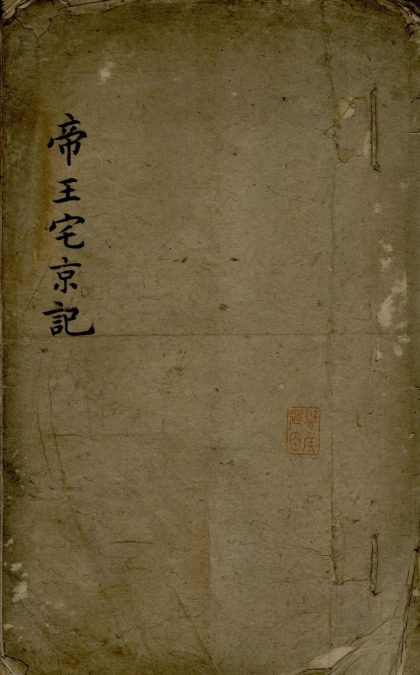 帝王宅京記